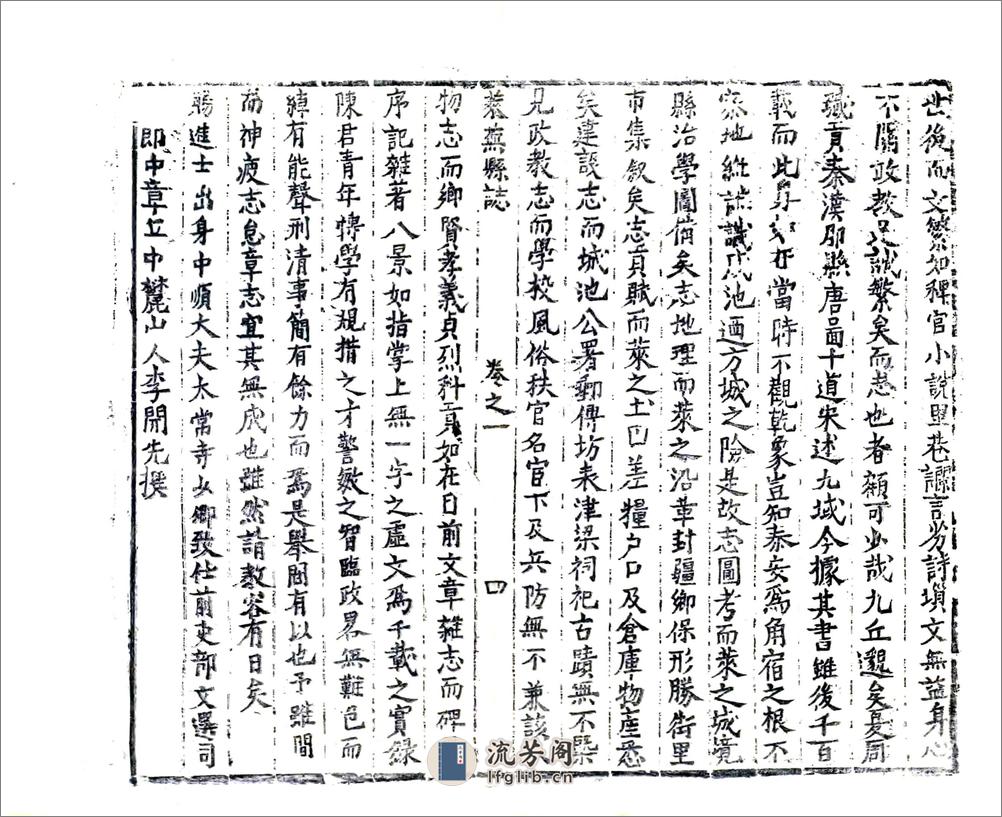 世後而文繁如稗官小說里巷謳言劣詩瑣文無益身心
不關政教是誠繁矣而志也者顧可少哉九丘邈矣夏周
職貢秦漢郡縣唐畵十道宋述九域今據其書雖後千百
載而此身如在當時不觀乾象豈知泰安爲角宿之根不
察地維誰識成池迺方城之險是故志圖考而萊之城境
縣治學圖偹矣志地理而萊之沿革封疆鄉保形勝街里
市集叙矣志貢賦而萊之土田差糧户口及倉庫物產悉
矣建設志而城池公署郵傳坊表津梁祠祀古蹟無不槩
見政教志而學校風俗秩官名宦下及兵防無不兼該人
萊蕪縣誌 卷之一 四
物志而鄉賢孝義貞烈科貢如在目前文章雜志而碑
序記雜著八景如指掌上無一字之虛文爲千載之實錄
陳君青年博學有規措之才警敏之智臨政畧無難色而
綽有能聲刑清事簡有餘力而爲是舉固有以也予雖間
而神疲志怠章志宜其無成也雖然請教容有日矣
賜進士出身中順大夫太常寺少卿致仕前吏部文選司
郎中章丘中麓山人李開先撰
流芳阁
lfglib.cn